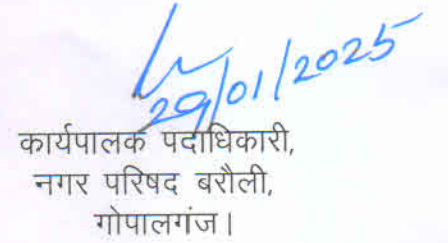 29/01/2025
कार्यपालक पदाधिकारी,
नगर परिषद बरौली,
गोपालगंज।